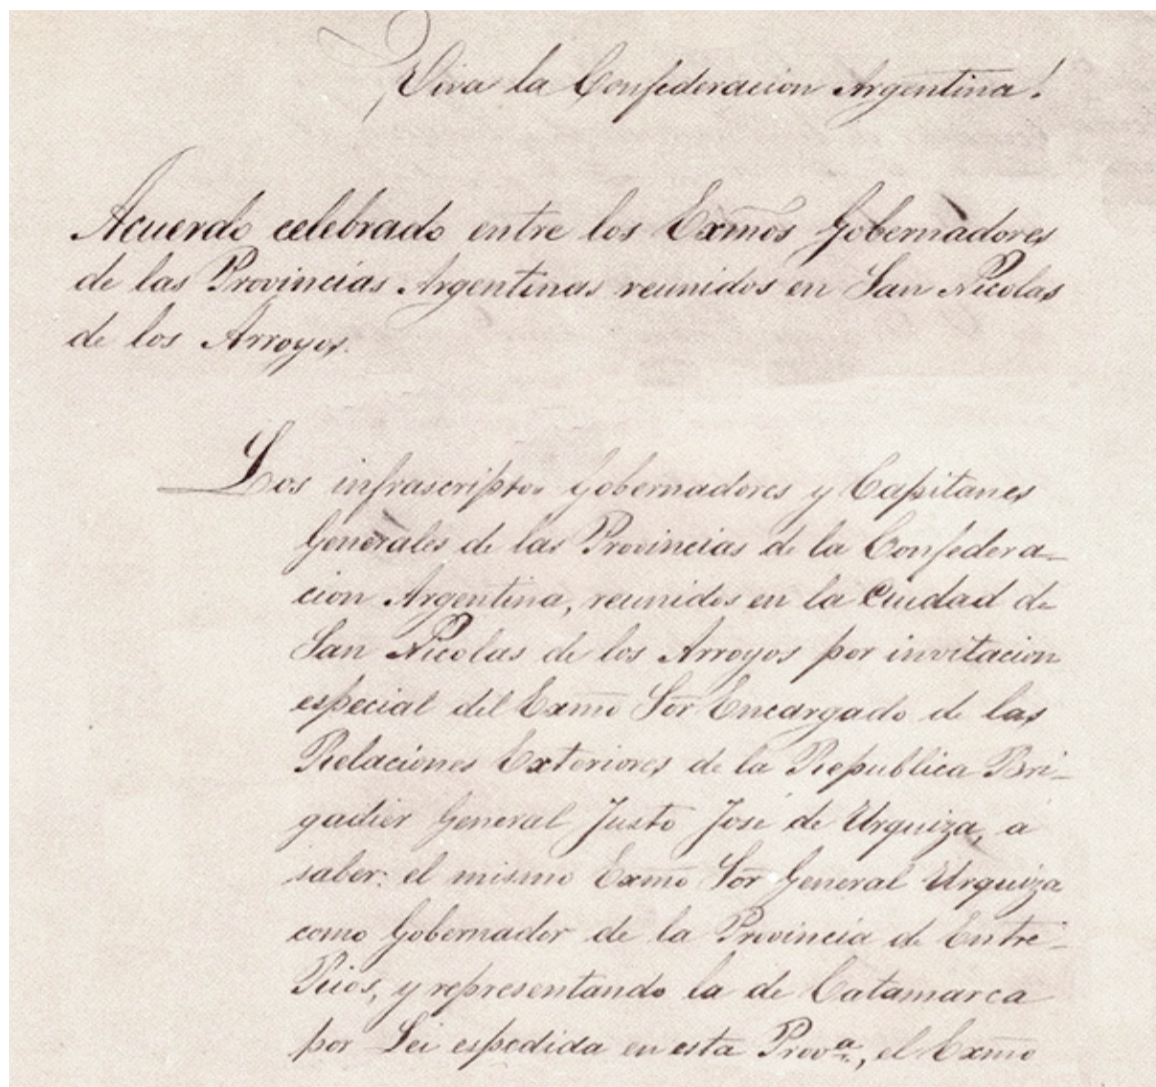 Viva la Confederacion Argentina!
Acuerdo celebrado entre los Exmos Gobernadores
de las Provincias Argentinas reunidos en San Nicolas
de los Arroyos.
Los infrascriptos Gobernadores y Capitanes
Generales de las Provincias de la Confedera-
cion Argentina, reunidos en la Ciudad de
San Nicolas de los Arroyos por invitacion
especial del Exmo Sor Encargado de las
Relaciones Exteriores de la Republica Bri-
gadier General Justo José de Urquiza, a
saber: el mismo Exmo Sor General Urquiza
como Gobernador de la Provincia de Entre-
Rios, y representando la de Catamarca
por Lei espedida en esta Prov.ª, el Exmo